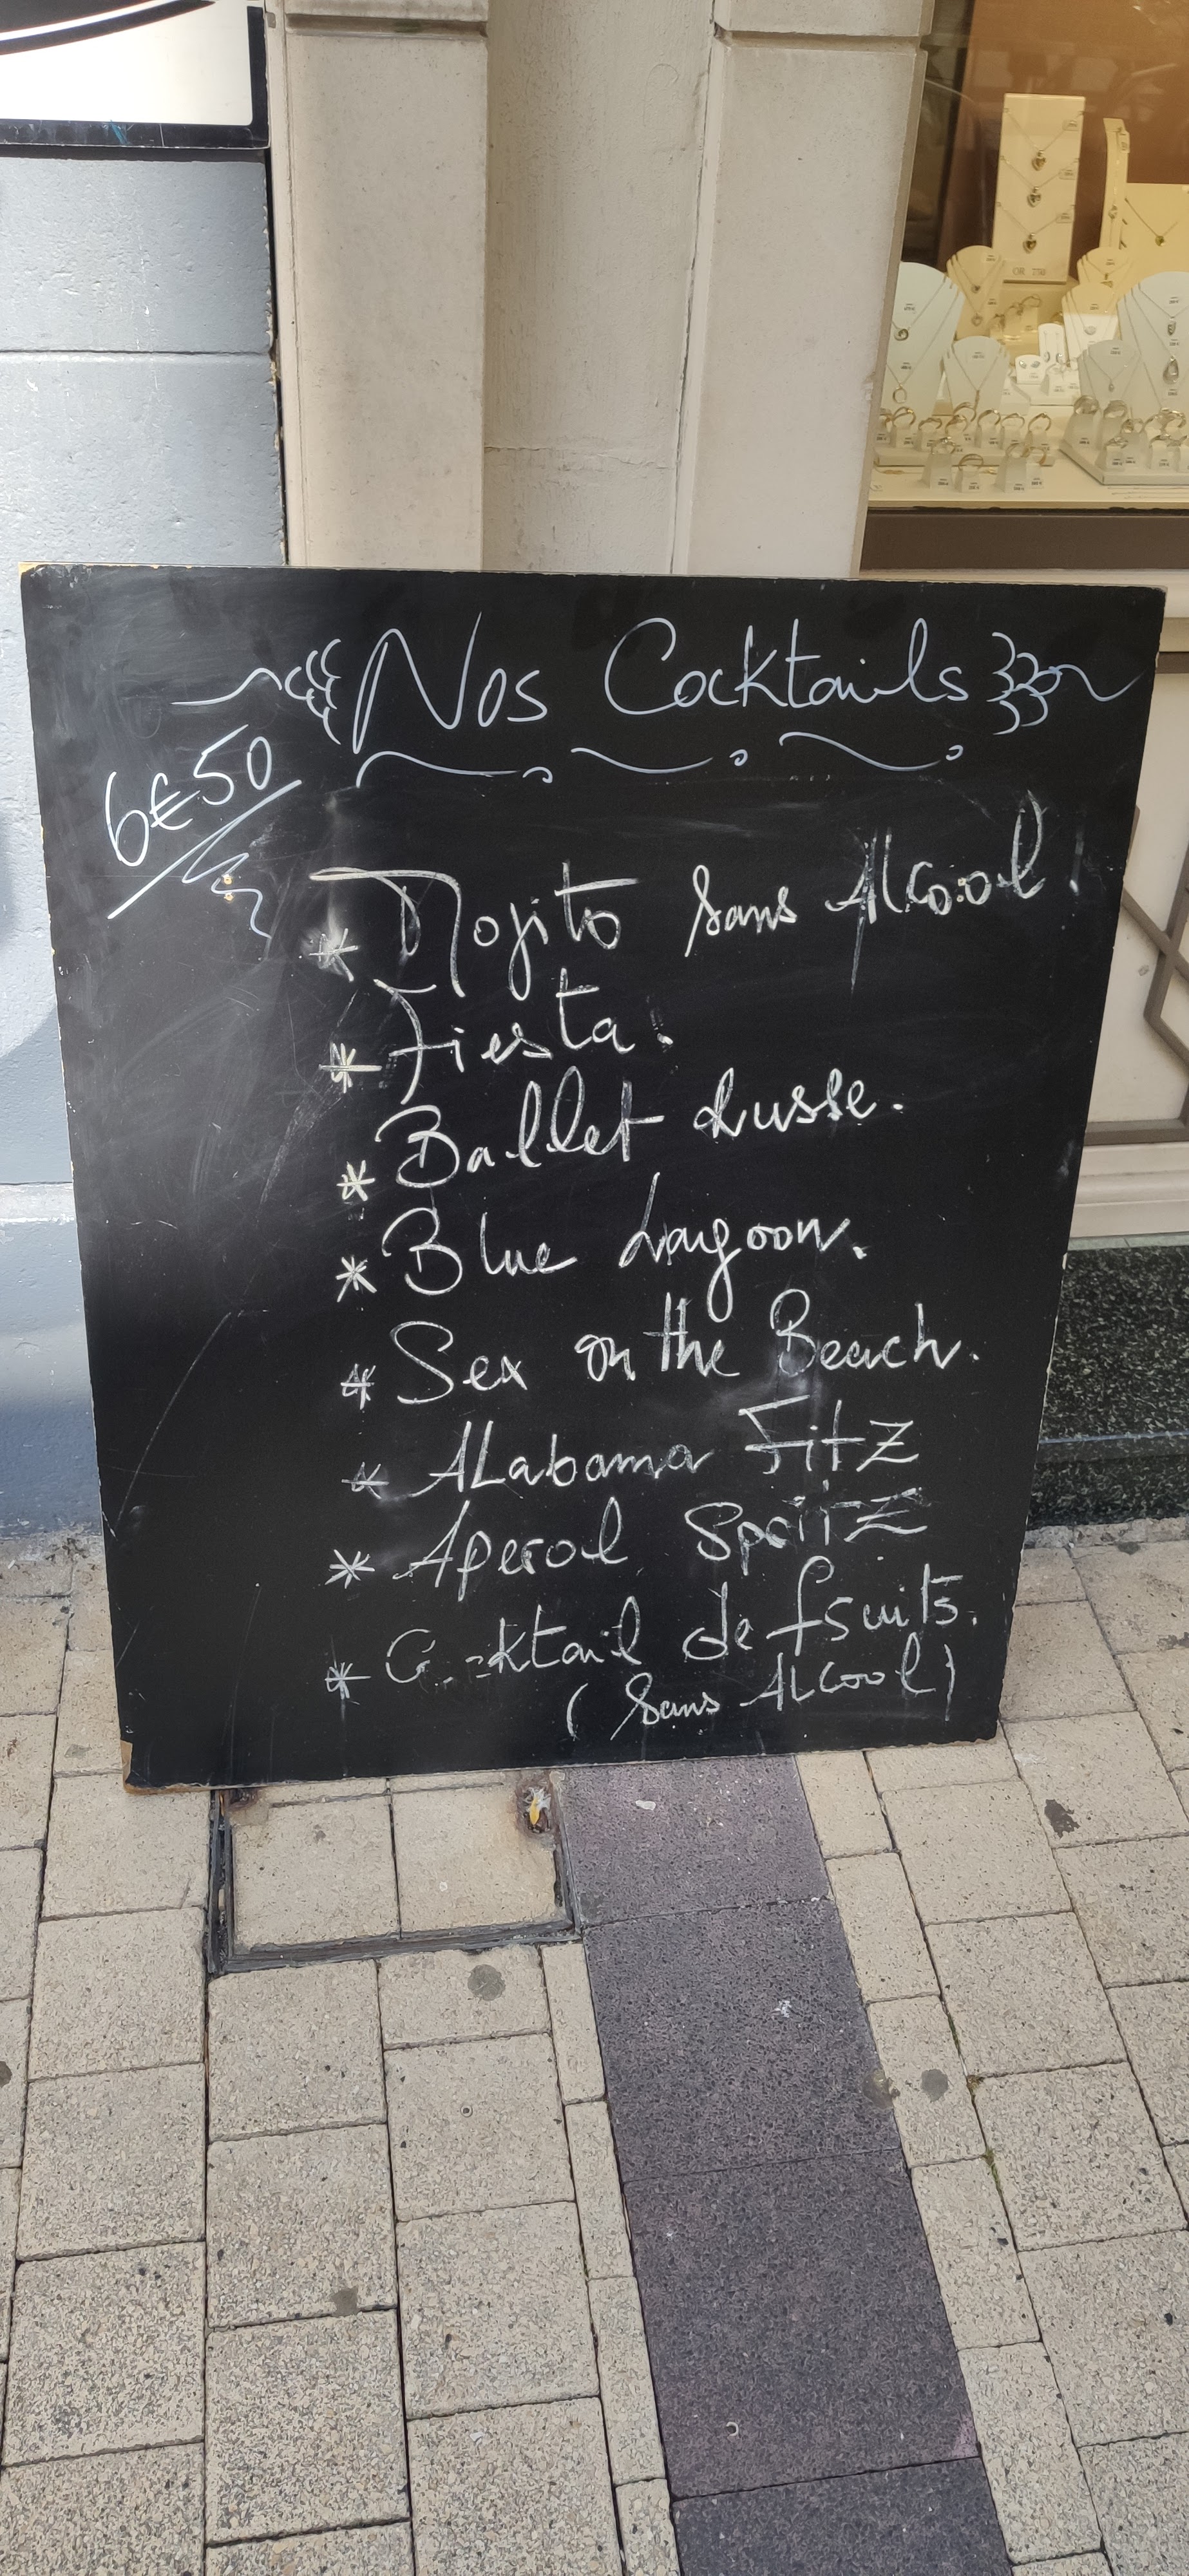 Nos Cocktails
6€50
* Mojito sans Alcool !
* Fiesta.
* Ballet Russe.
* Blue Lagoon.
* Sex on the Beach.
* ALabama FitZ
* Aperol SpritZ
* Cocktail de fruits.
( Sans ALcool )
OR 750